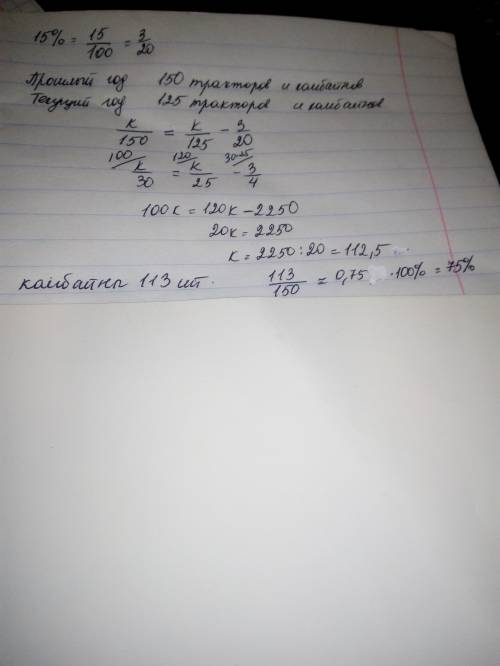 15% = 15/100 = 3/20
Прошлый год 150 тракторов и комбайнов
Текущий год 125 тракторов и комбайнов
к/150 = к/125 - 3/20
100/ к/30 = 120/ к/25 - 30·25/ 3/4
100к = 120к - 2250
20к = 2250
к = 2250 : 20 = 112,5
комбайны 113 шт. 113/150 = 0,75 · 100% = 75%